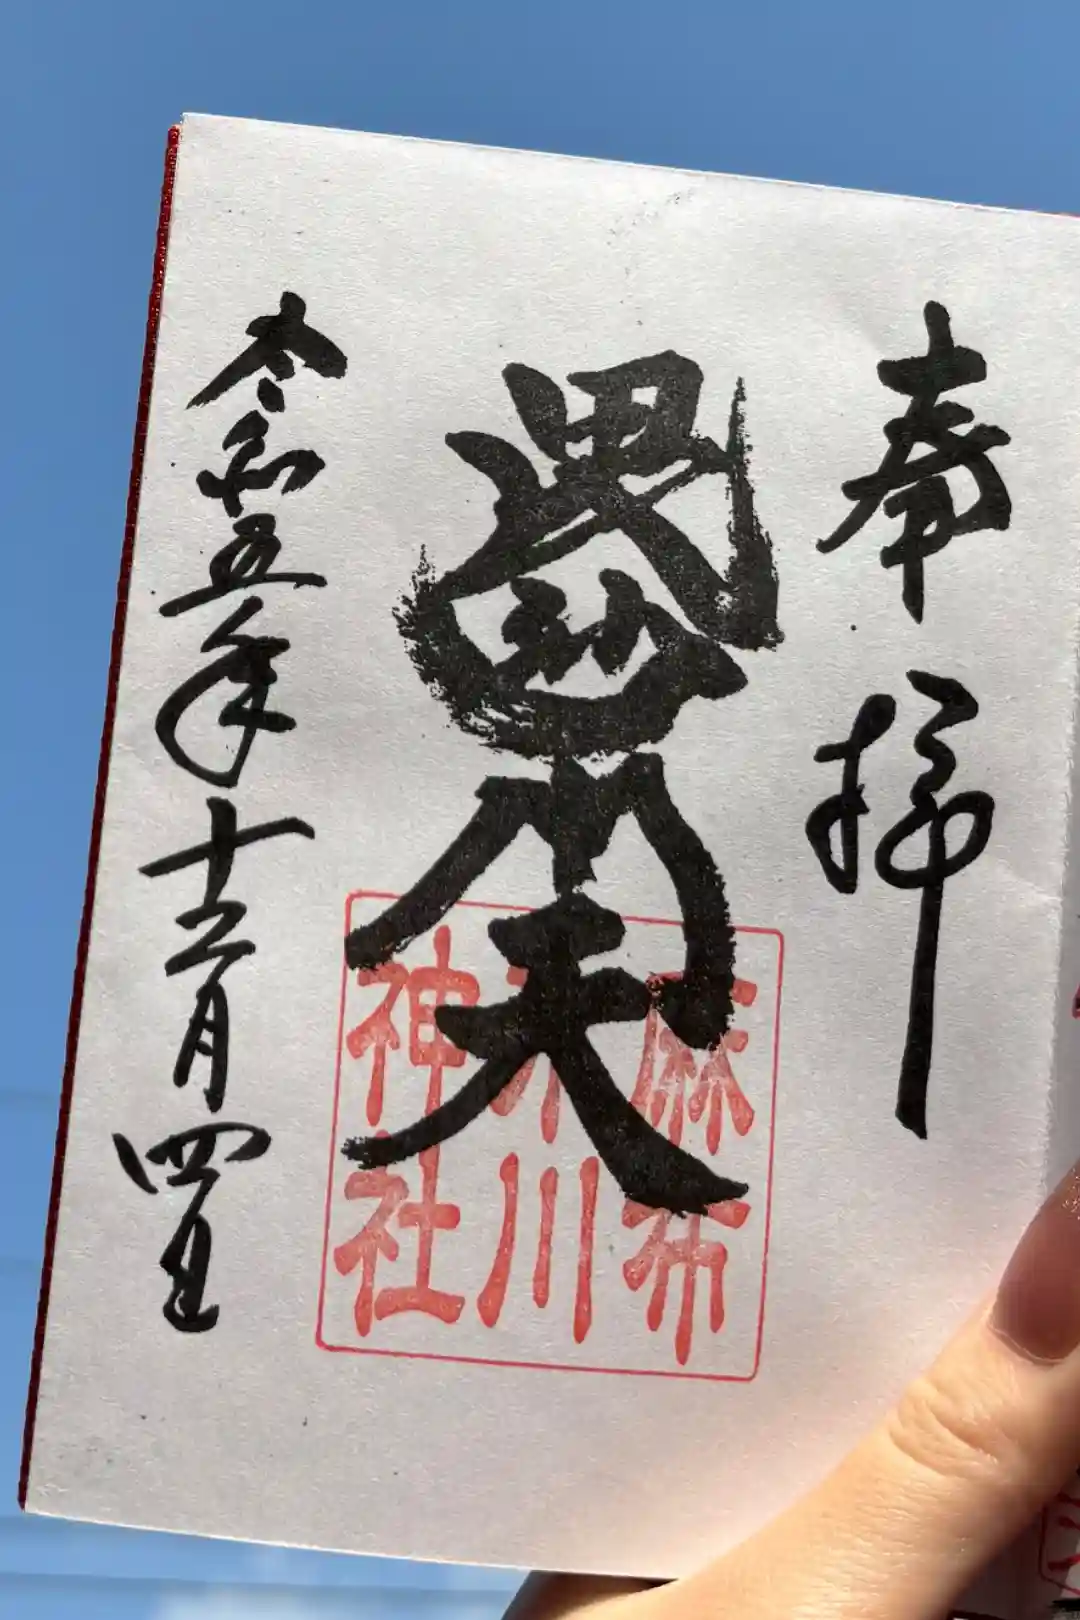 奉拝
毘沙門天
麻布
氷川
神社
令和五年十二月四日